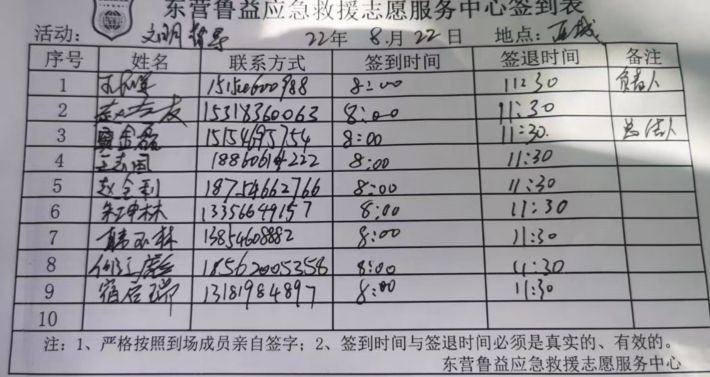 东营鲁益应急救援志愿服务中心签到表
活动: 文明督导 22年 8月22日 地点:
序号 姓名 联系方式 签到时间 签退时间 备注
1 8:00 11:30 负责人
2 15318360063 8:00 11:30
3 窦金磊 15154695754 8:00 11:30
4 18860614222 8:00 11:30
5 赵金利 18754662766 8:00 11:30
6 朱坤林 13356649157 8:00 11:30
7 韩玉林 13854608882 8:00 11:30
8 18562005356 8:00 11:30
9 宿启瑞 13181984897 8:00 11:30
10
注:1、严格按照到场成员亲自签字;2、签到时间与签退时间必须是真实的、有效的。
东营鲁益应急救援志愿服务中心